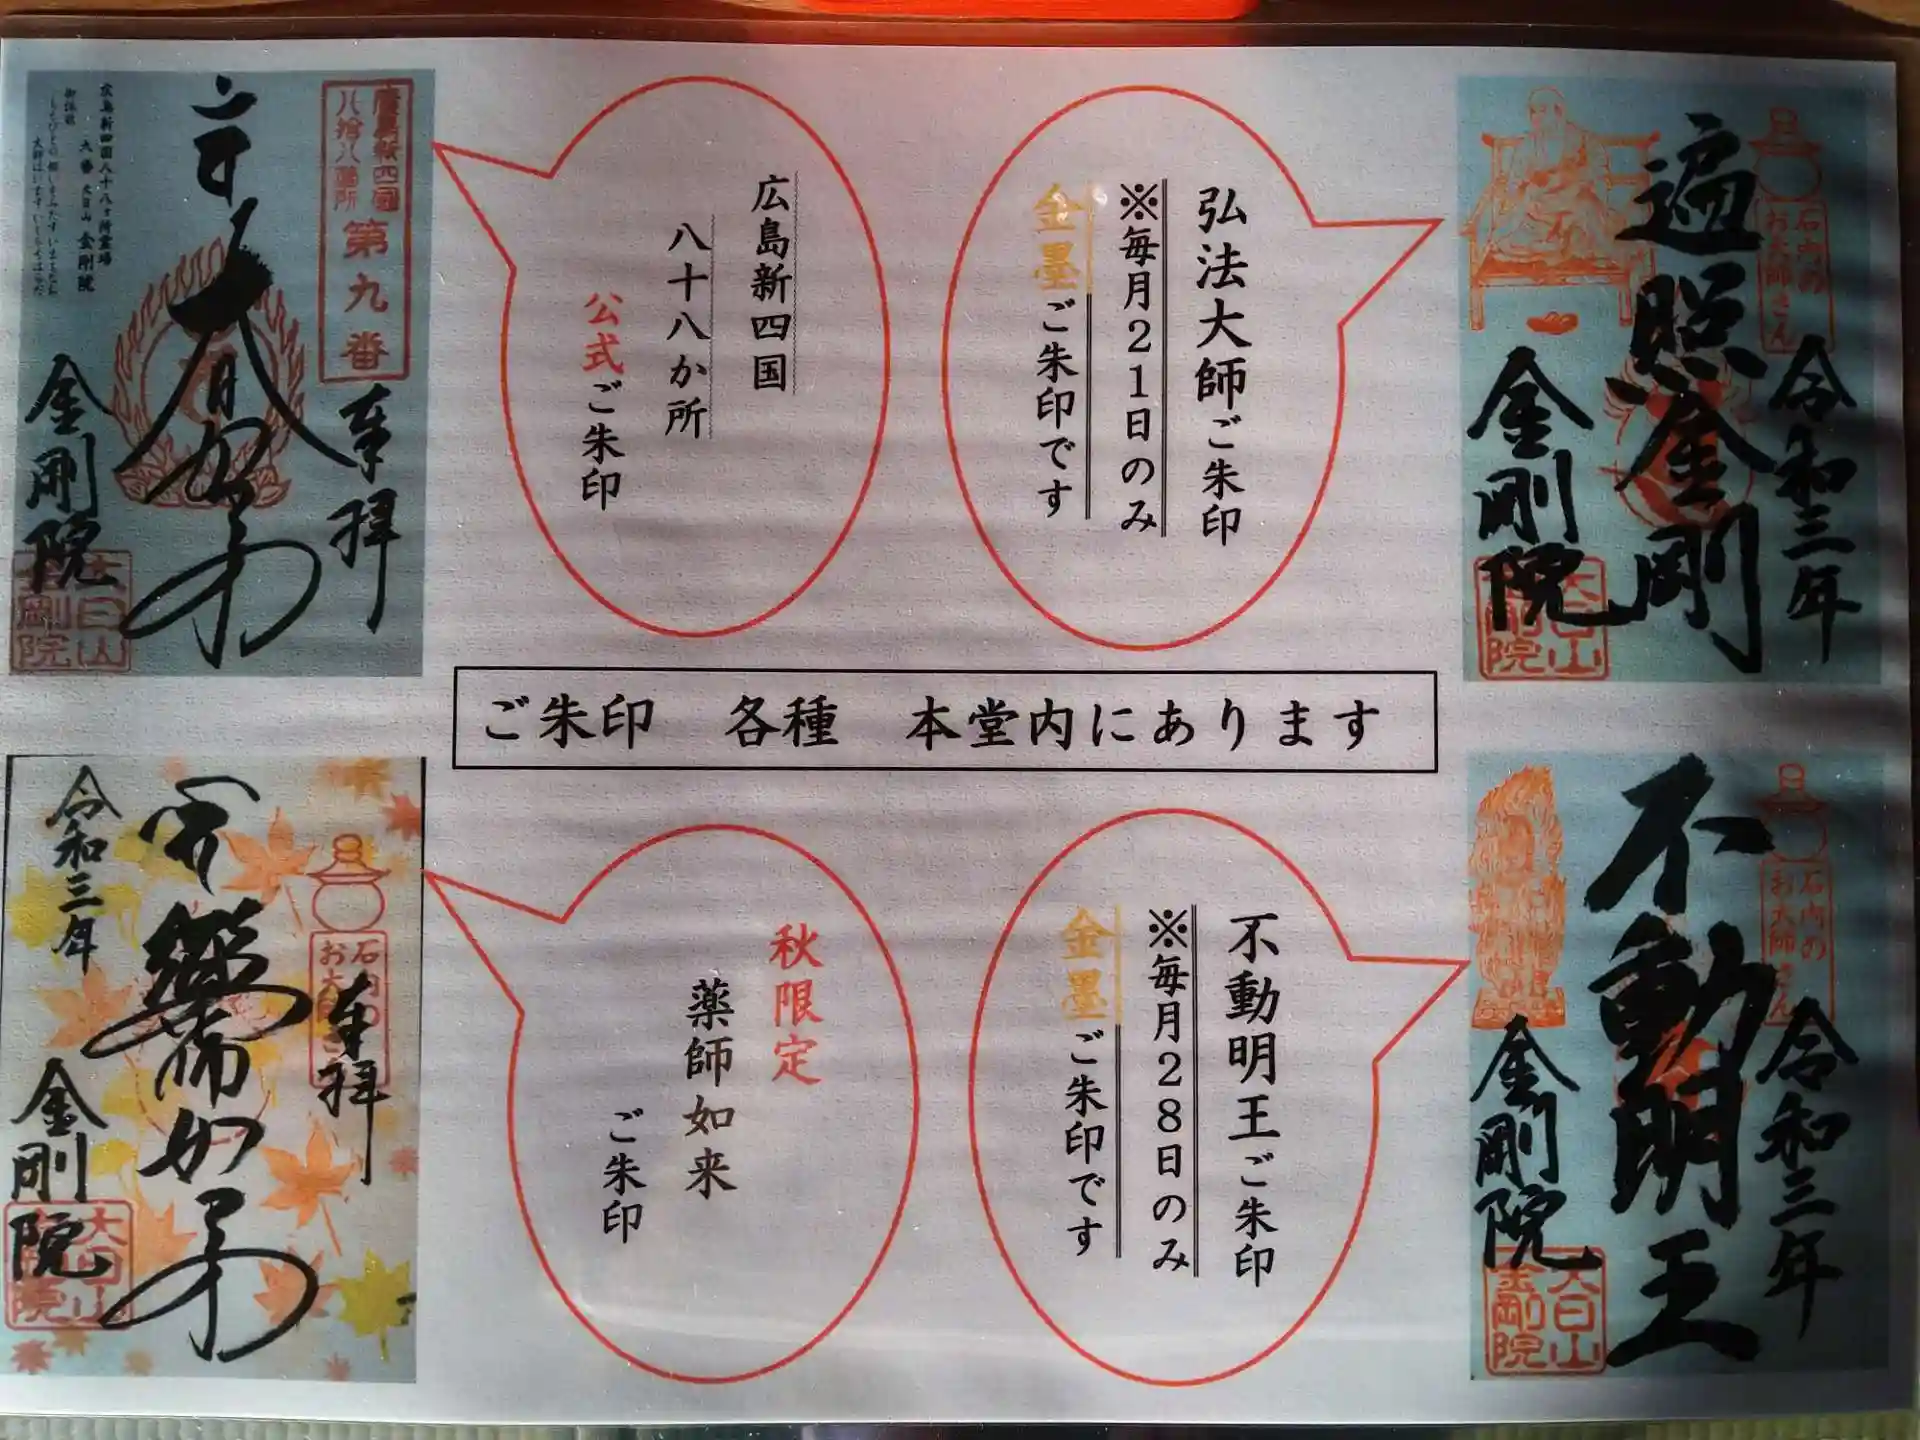 遍照金剛
令和三年
金剛院
石内の
お大師さん
大日山
金剛院
弘法大師ご朱印
※毎月21日のみ
金墨ご朱印です
広島新四国
八十八か所
公式ご朱印
広島新四国
八拾八箇所
第九番
奉拝
大日如来
金剛院
大日山
金剛院
広島新四国八十八ヶ所霊場
九番 大日山 金剛院
御詠歌
ご朱印 各種 本堂内にあります
不動明王
令和三年
金剛院
石内の
お大師さん
大日山
金剛院
不動明王ご朱印
※毎月28日のみ
金墨ご朱印です
秋限定
薬師如来
ご朱印
奉拝
石内の
薬師如来
令和三年
金剛院
大日山